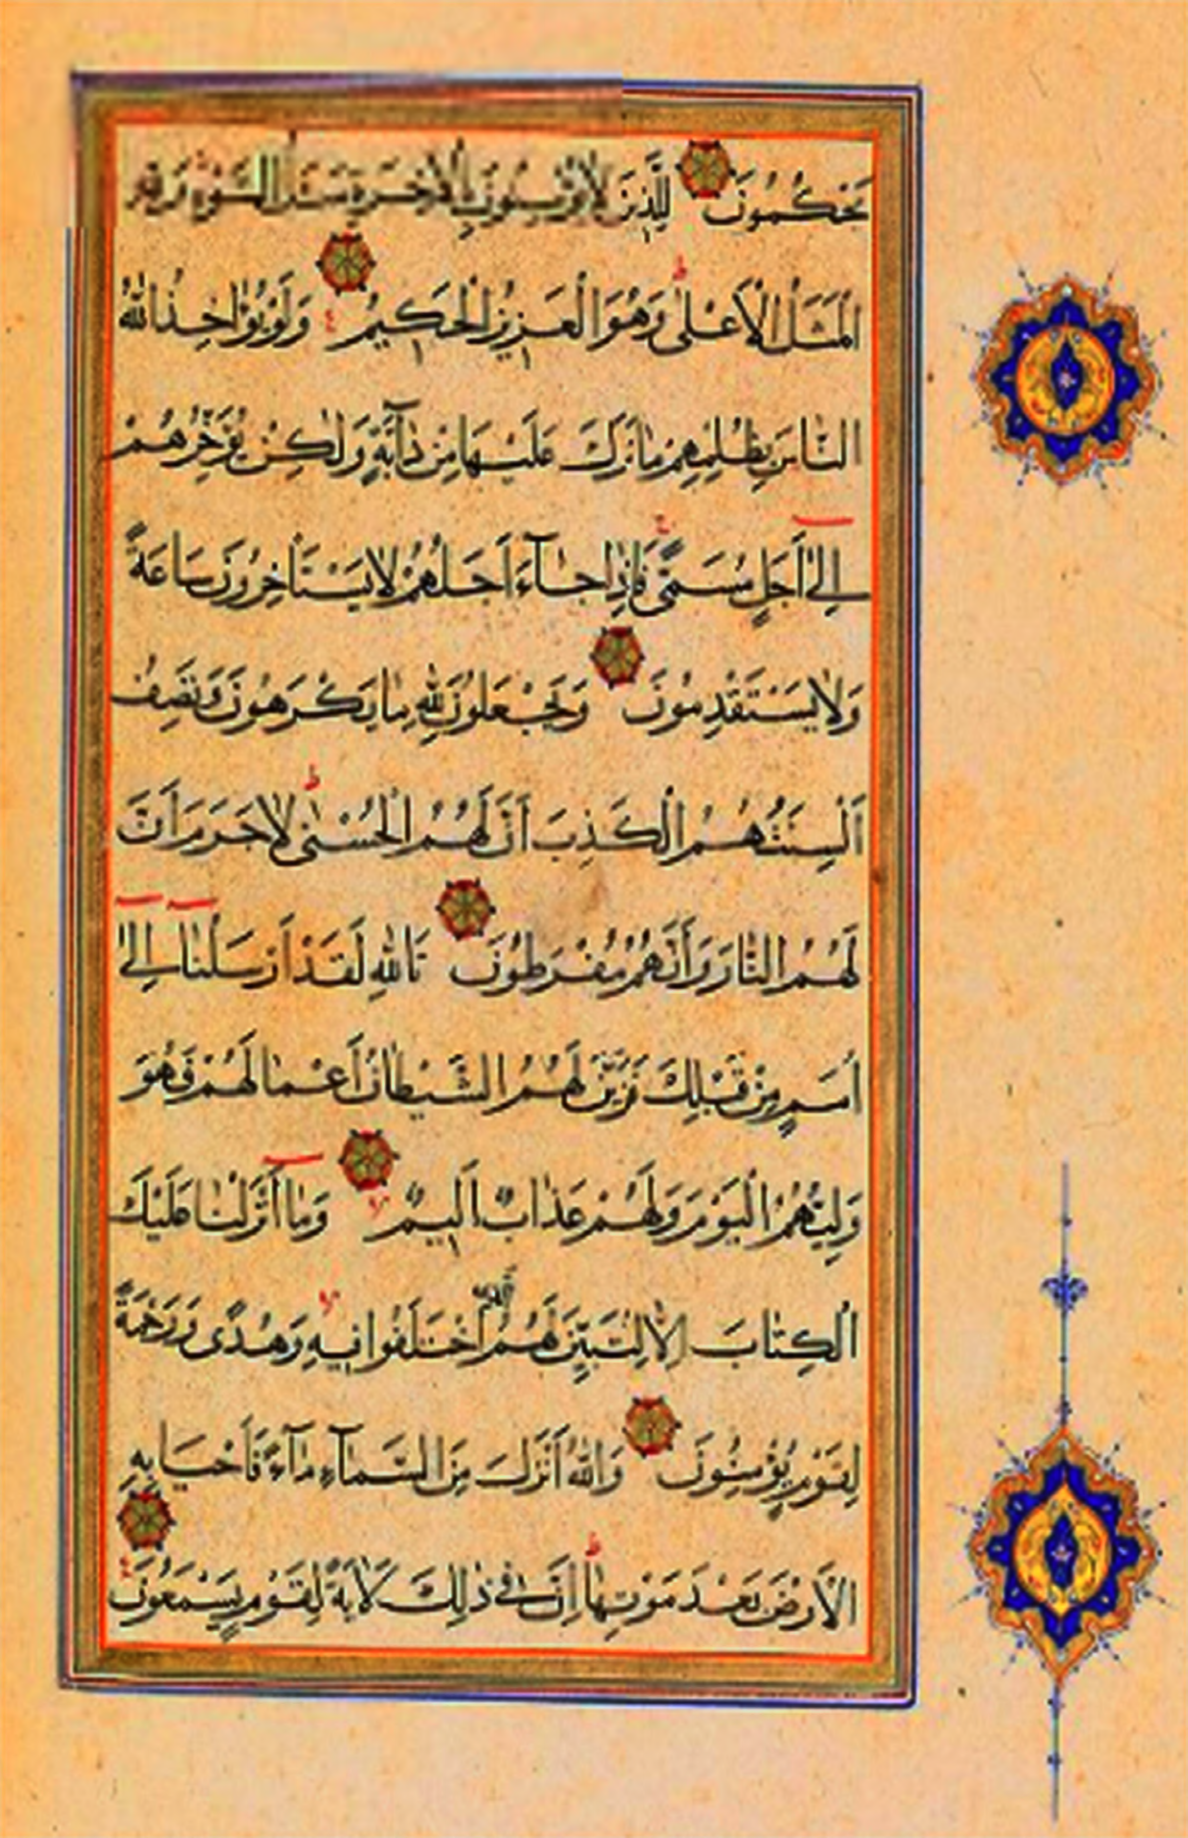 يَحْكُمُونَ لِلَّذِينَ لَا يُؤْمِنُونَ بِالْآخِرَةِ مَثَلُ السَّوْءِ وَلِلَّهِ
الْمَثَلُ الْأَعْلَىٰ ط وَهُوَ الْعَزِيزُ الْحَكِيمُ ع وَلَوْ يُؤَاخِذُ اللَّهُ
النَّاسَ بِظُلْمِهِمْ مَا تَرَكَ عَلَيْهَا مِنْ دَآبَّةٍ وَلَٰكِنْ يُؤَخِّرُهُمْ
إِلَىٰ أَجَلٍ مُسَمًّى ج فَإِذَا جَآءَ أَجَلُهُمْ لَا يَسْتَأْخِرُونَ سَاعَةً
وَلَا يَسْتَقْدِمُونَ وَيَجْعَلُونَ لِلَّهِ مَا يَكْرَهُونَ وَتَصِفُ
أَلْسِنَتُهُمُ الْكَذِبَ أَنَّ لَهُمُ الْحُسْنَىٰ ط لَا جَرَمَ أَنَّ
لَهُمُ النَّارَ وَأَنَّهُمْ مُفْرَطُونَ تَاللَّهِ لَقَدْ أَرْسَلْنَا إِلَىٰ
أُمَمٍ مِنْ قَبْلِكَ فَزَيَّنَ لَهُمُ الشَّيْطَانُ أَعْمَالَهُمْ فَهُوَ
وَلِيُّهُمُ الْيَوْمَ وَلَهُمْ عَذَابٌ أَلِيمٌ وَمَا أَنْزَلْنَا عَلَيْكَ
الْكِتَابَ إِلَّا لِتُبَيِّنَ لَهُمُ الَّذِي اخْتَلَفُوا فِيهِ وَهُدًى وَرَحْمَةً
لِقَوْمٍ يُؤْمِنُونَ وَاللَّهُ أَنْزَلَ مِنَ السَّمَآءِ مَآءً فَأَحْيَا بِهِ
الْأَرْضَ بَعْدَ مَوْتِهَا ط إِنَّ فِي ذَٰلِكَ لَآيَةً لِقَوْمٍ يَسْمَعُونَ ع